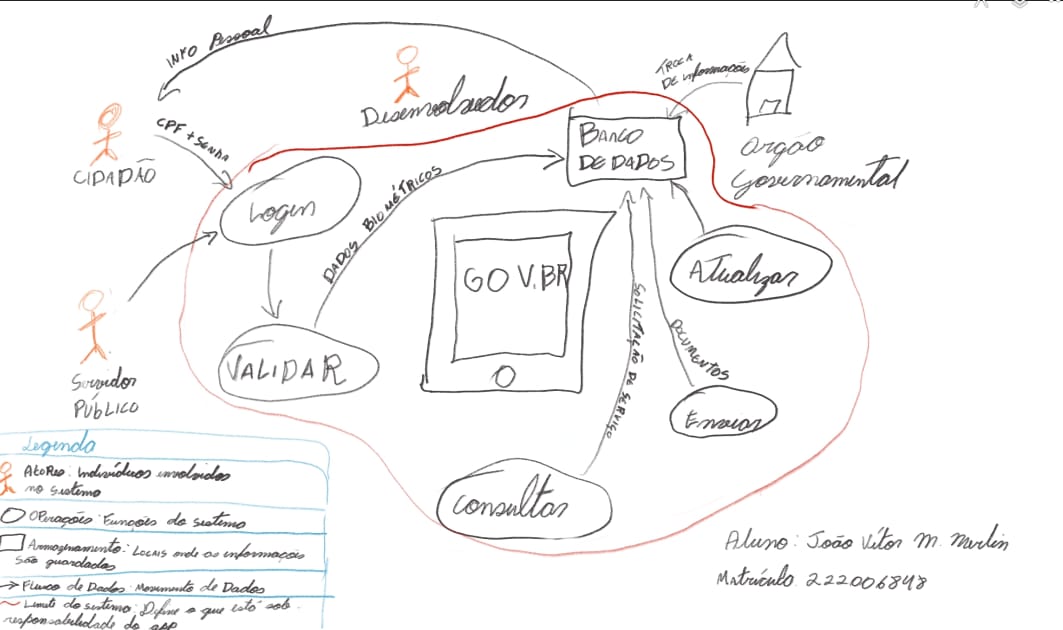 INFO Pessoal
Desenvolvedos
TROCA
DE informações
CIDADÃO
CPF + SENHA
BANCO
DE DADOS
órgão
Governamental
Login
DADOS BIOMÉTRICOS
GOV.BR
Atualizar
VALIDAR
SOLICITAÇÃO DE SERVIÇO
DOCUMENTOS
Servidor
PÚBLICO
Enviar
Consultar
Legenda
Atores: Indivíduos envolvidos
no sistema
Operações: Funções do sistema
Armazenamento: Locais onde as informações
são guardadas
Fluxo de Dados: Movimento de Dados
Limite do sistema: Define o que está sob
responsabilidade do app
Aluno: João Vitor M. Merlin
Matrícula 222006848